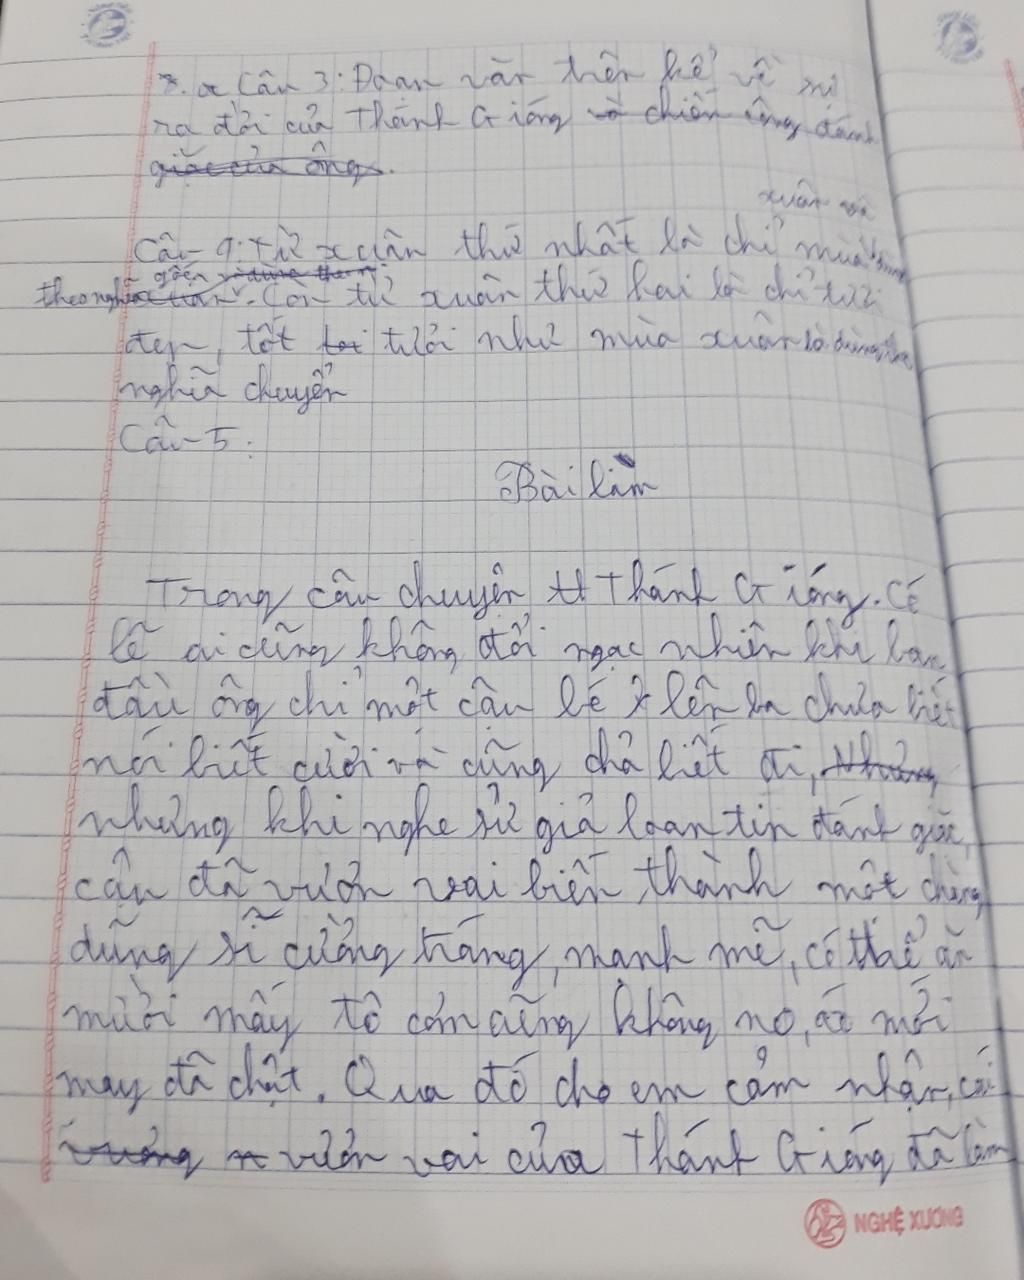 Câu 3: Đoạn văn trên kể về sự
ra đời của Thánh Gióng và chiến công đánh
giặc của ông.
xuân
Câu 4: Từ xuân thứ nhất là chỉ mùa
gốc
theo nghĩa Còn từ xuân thứ hai là chỉ tươi
đẹp, tốt tươi như mùa xuân là dùng theo
nghĩa chuyển
Câu 5:
Bài làm
Trong câu chuyện Thánh Gióng. Có
lẽ ai cũng không đỗi ngạc nhiên khi ban
đầu ông chỉ một cậu bé lên ba chưa biết
nói biết cười và cũng chả biết đi, Nhưng
nhưng khi nghe sứ giả loan tin đánh giặc,
cậu đã vươn vai biến thành một chàng
dũng sĩ cường tráng, mạnh mẽ, có thể ăn
mười mấy tô cơm cũng không no, áo mới
may đã chật. Qua đó cho em cảm nhận, cái
vươn vai của Thánh Gióng đã làm
NGHỆ XƯƠNG